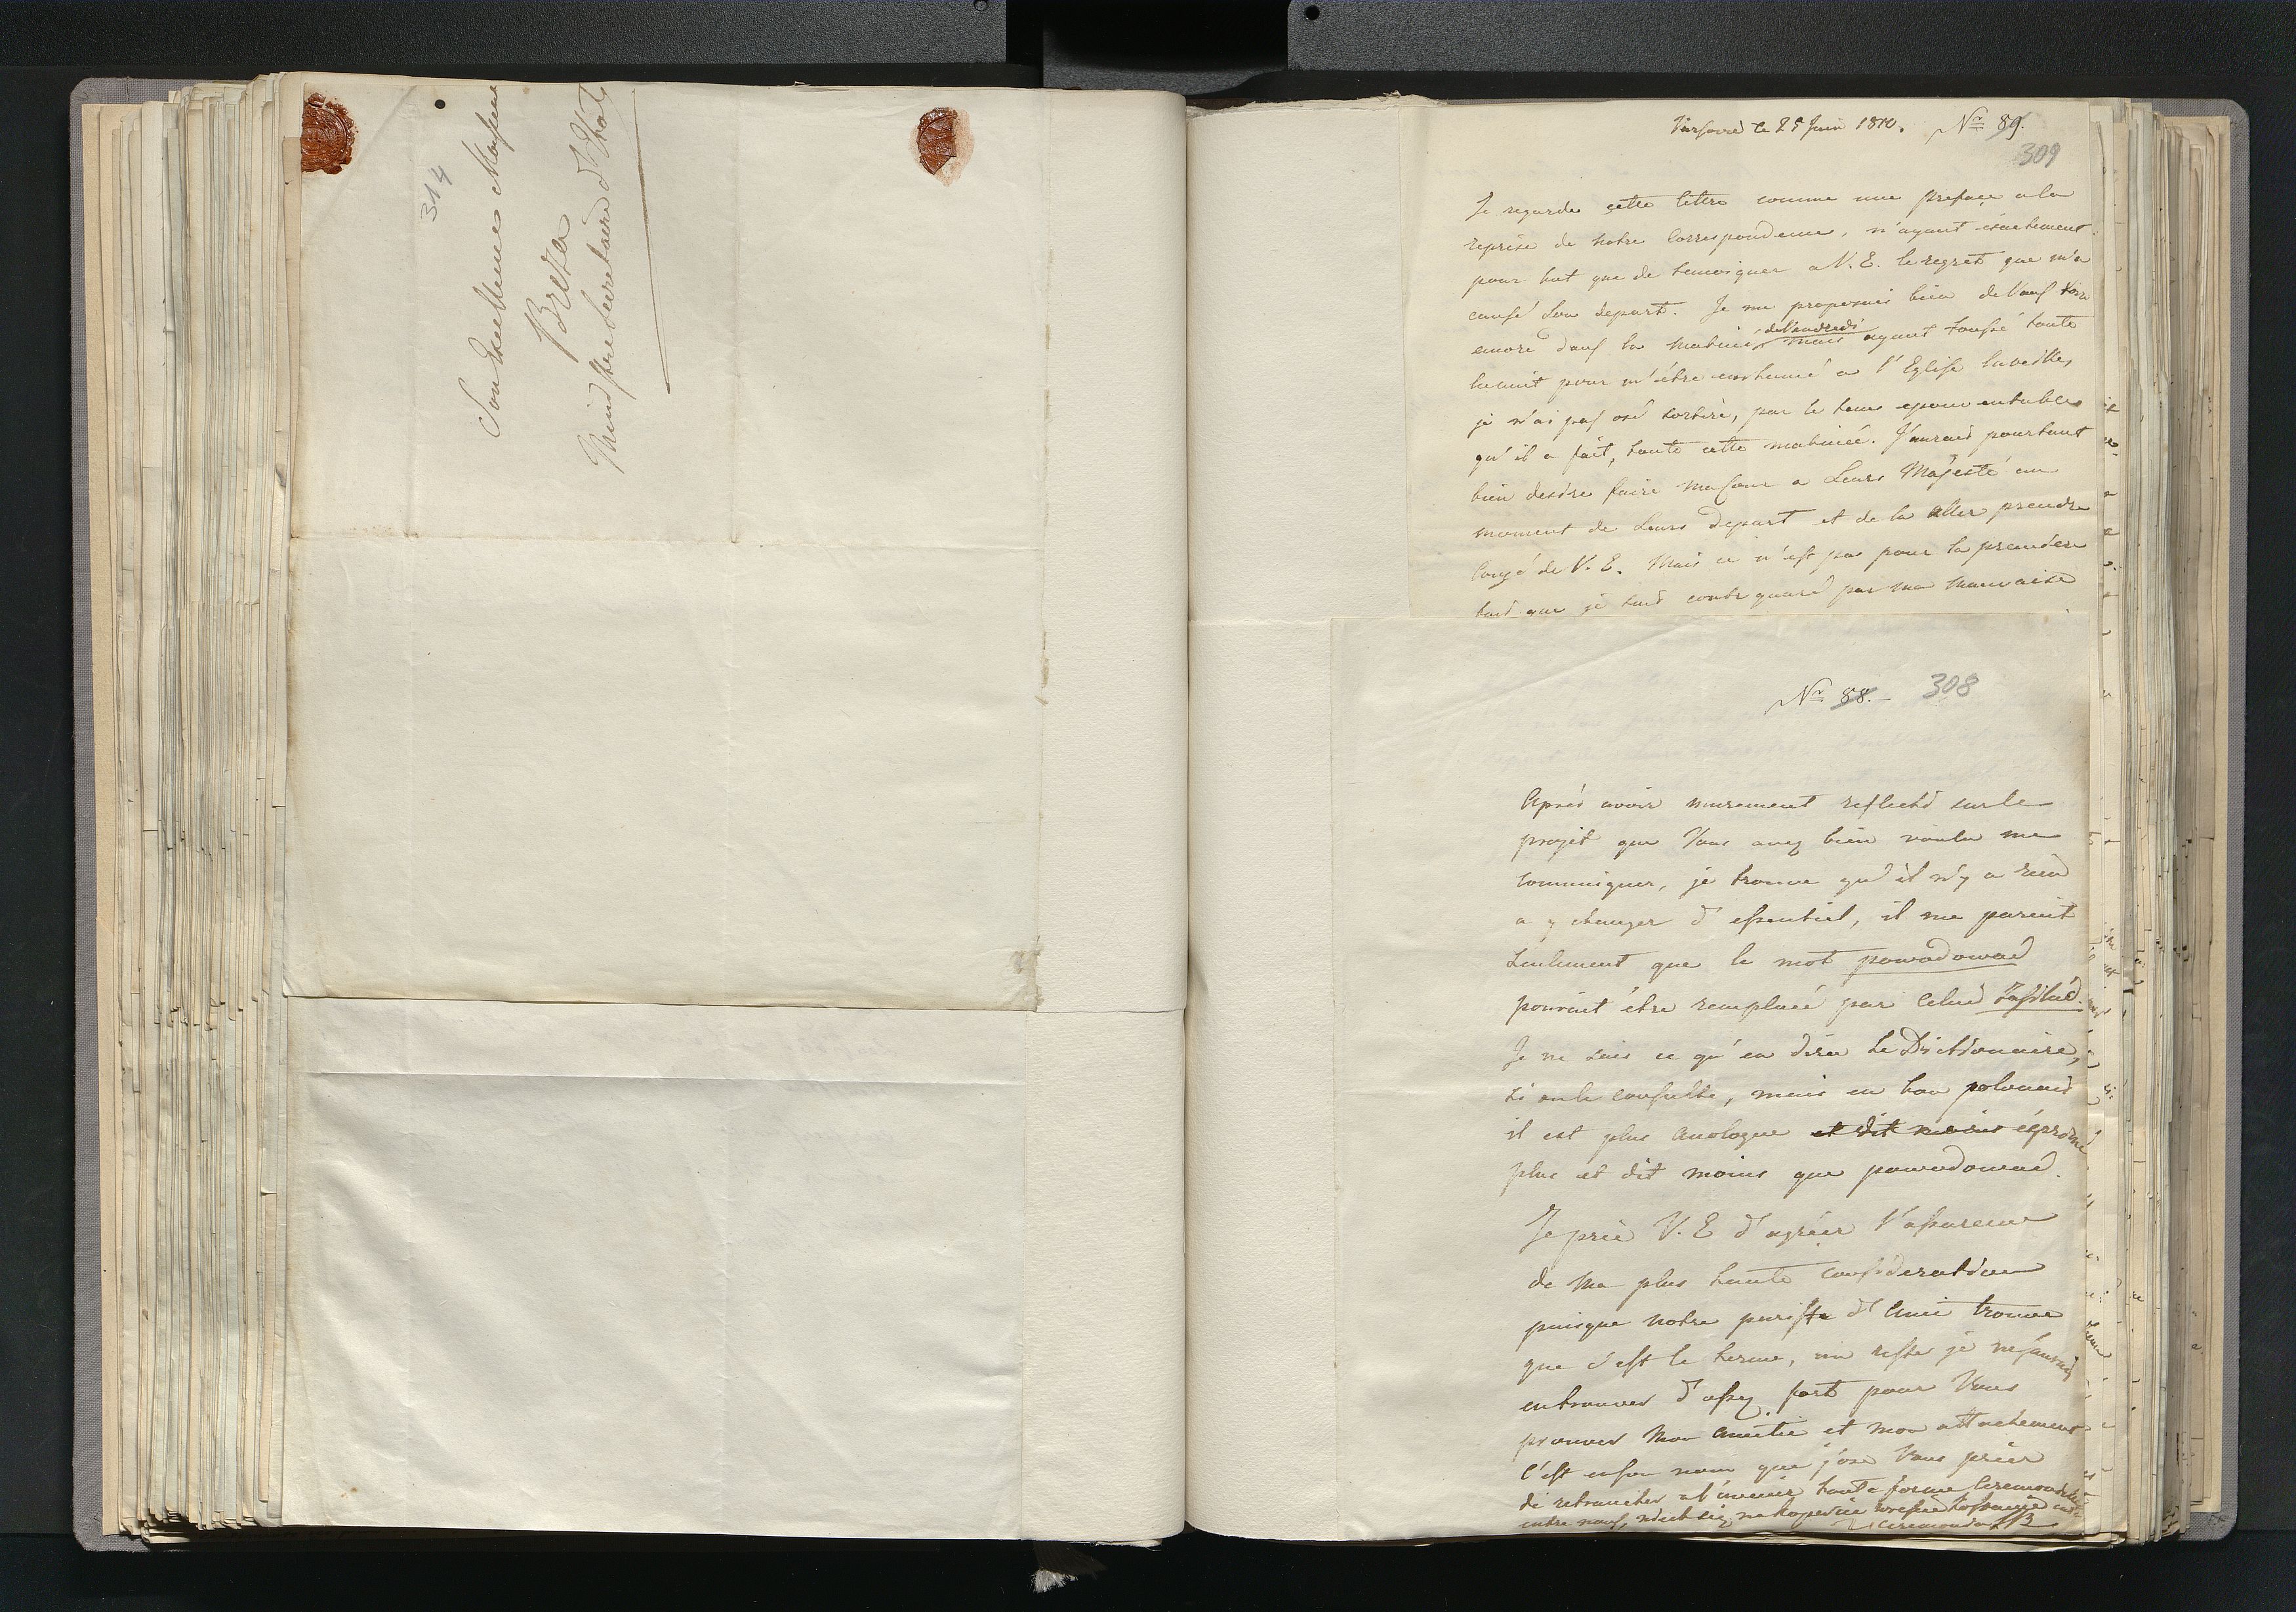 314
Son Excellence Monsieur
Breza
Ministre Secretaire d'Etat
Varsovie le 25 Juin 1810. Nr 89.
309
Je regarde cette lettre comme une preface a la
reprise de notre Correspondence, n'ayant exactement
pour but que de temoigner a V. E. le regret que m'a
causé son depart. Je me proposais bien de Vous voir
encore dans la matinée de Vendredi mais ayant toussé toute
la nuit pour m'être enrhumé a l'Eglise la veille,
je n'ai pas osé sortir, par le tems epouventable
qu'il a fait, toute cette matinée. J'aurais pourtant
bien desiré faire ma Cour a Leurs Majesté au
moment de Leurs depart et de la aller prendre
Congé de V. E. Mais ce n'est pas pour la premiere
fois que je suis contrquaré par ma mauvaise
Nr 88. 308
Après avoir murement reflechi sur le
projet que Vous avez bien voulu me
communiquer, je trouve qu'il n'y a rien
a y changer d'essentiel, il me parait
seulement que le mot powodował
pourait être remplacé par celui
Je ne sais ce qu'en dira le Dictionaire,
si on le consulte, mais en bon polonais
il est plus analogue et dit moins exprime
plus et dit moins que powodował.
Je prie V. E d'agréer l'assurance
de ma plus haute consideration
puisque notre puriste d'Ami trouve
que c'est le terme, au reste je ne saurais
en trouver d'assez fort pour Vous
prouver mon amitié et mon attachement
C'est en son nom que j'ose Vous prier
de retrancher a l'avenir toute forme Ceremoniale
entre nous,